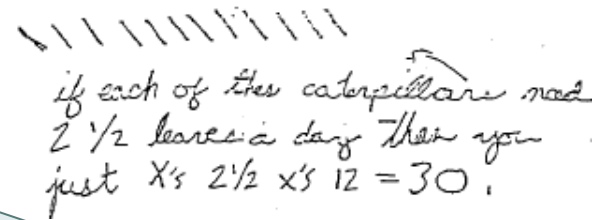 if each of thes caterpillars need
2 1/2 leaves a day then you
just X's 2 1/2 x's 12 = 30.